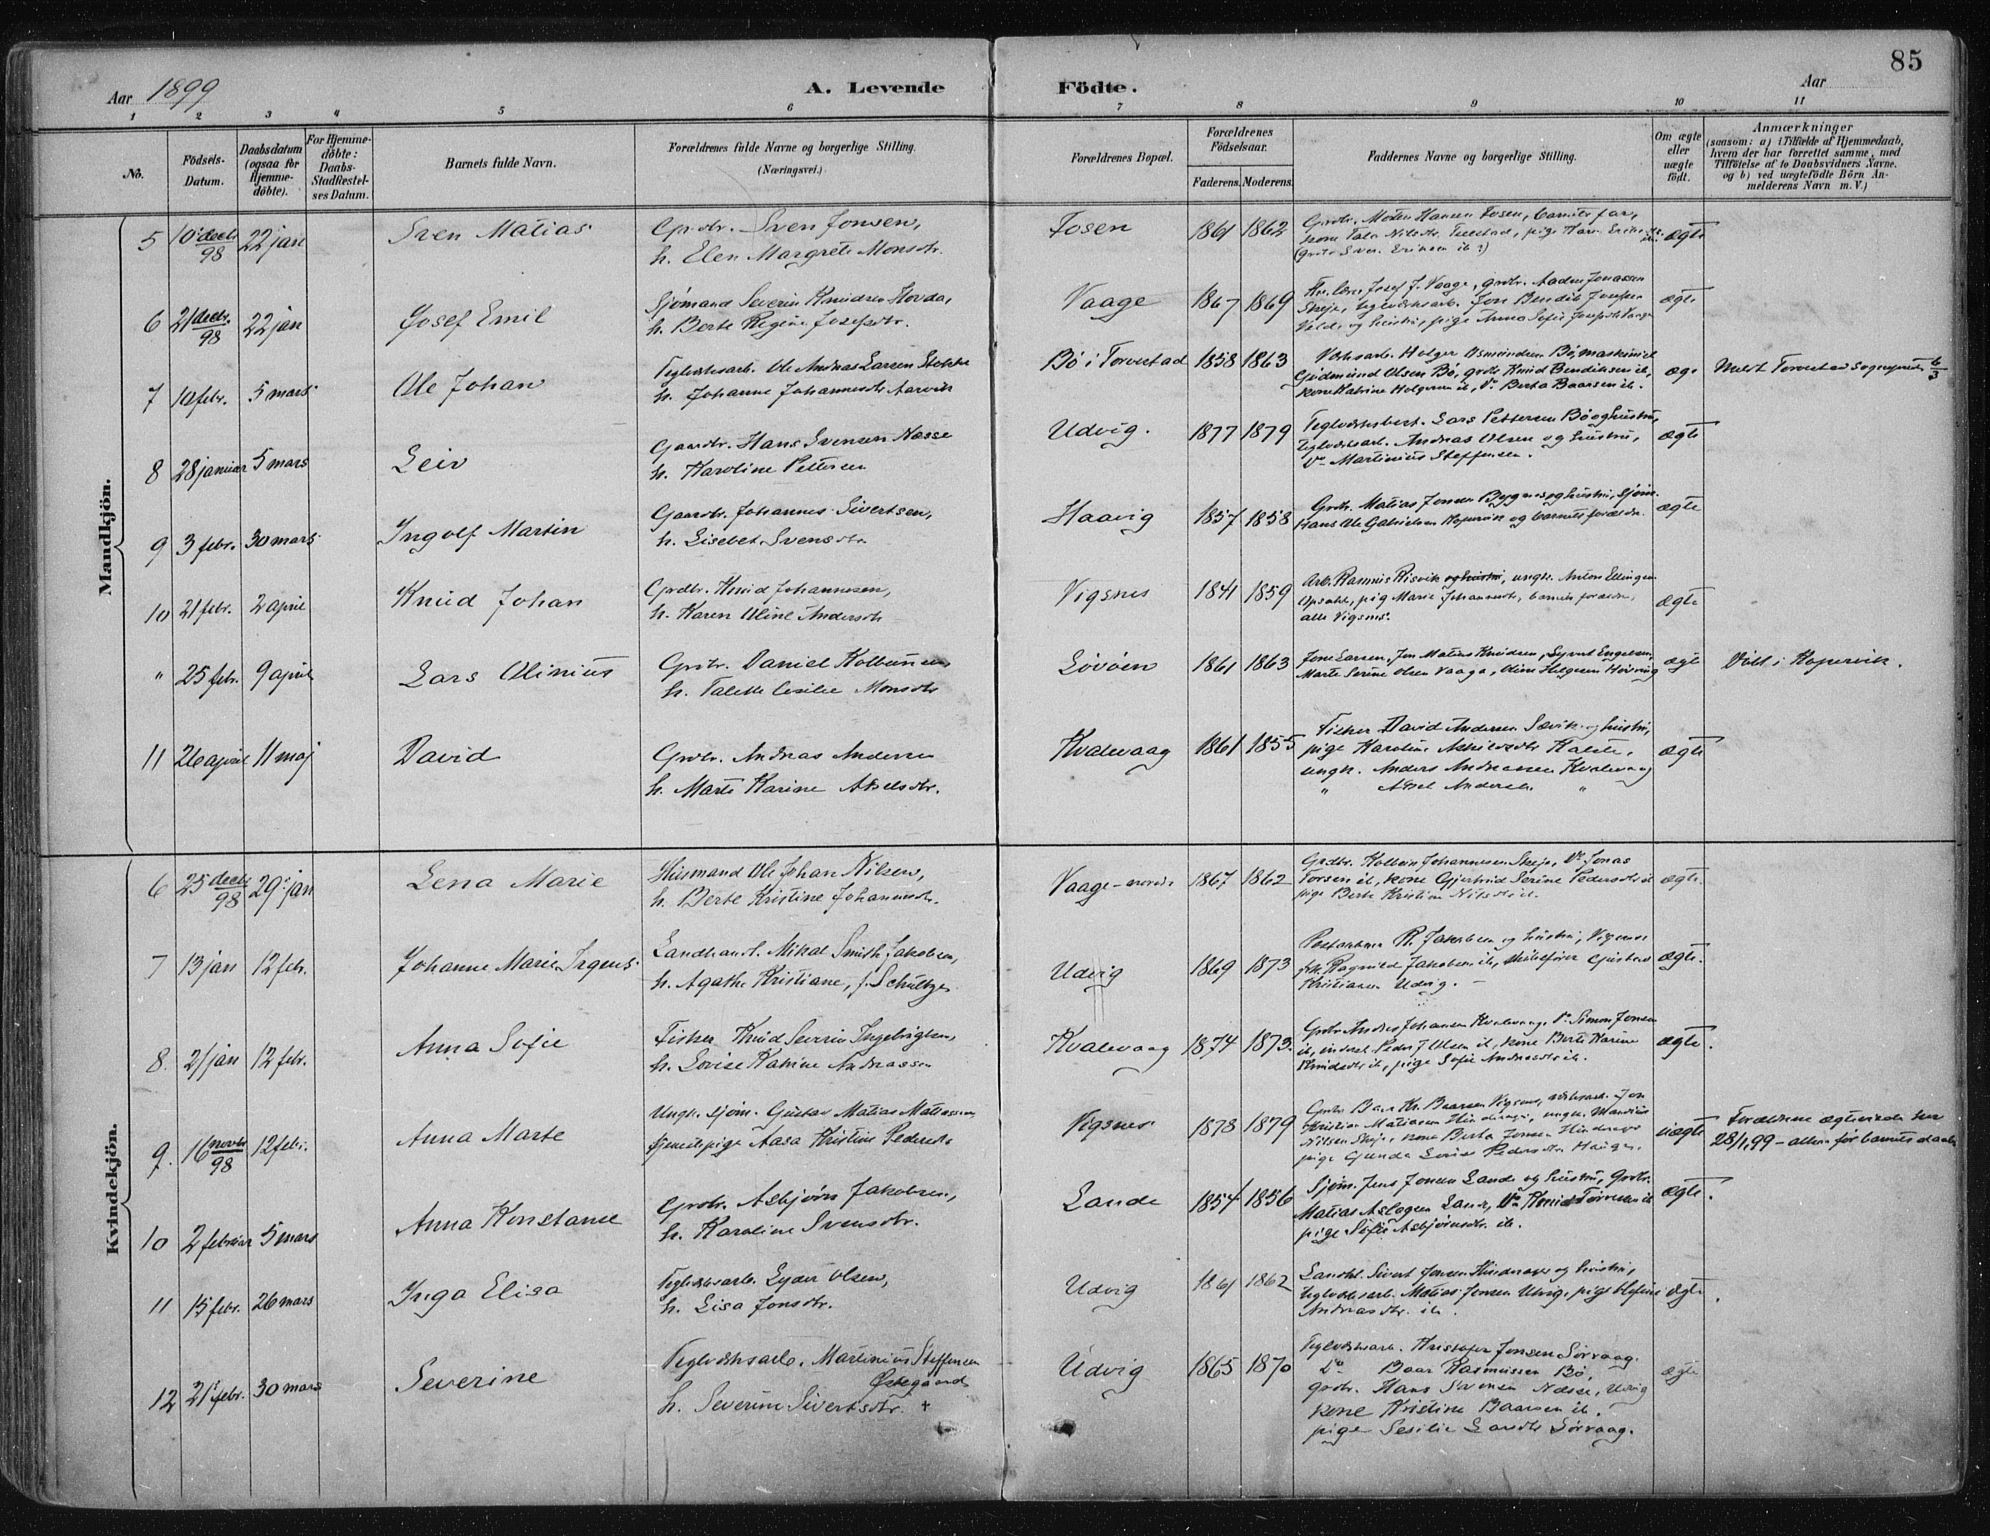 85
Aar 1899
A. Levende Födte.
Aar
1 2 3 4 5 6 7 8 9 10 11
No.
Födsels-Datum.
Daabsdatum (ogsaa for Hjemme-döbte).
For Hjemme-döbte: Daabs-Stadfæstel-ses Datum.
Barnets fulde Navn.
Forældrenes fulde Navne og borgerlige Stilling.
(Næringsvei.)
Forældrenes Bopæl.
Forældrenes Födselsaar.
Faderens. Moderens.
Faddernes Navne og borgerlige Stilling.
Om ægte eller uægte födt.
Anmærkninger
(saasom: a) i Tilfælde af Hjemmedaab, hvem der har forrettet samme, med Tilföielse af to Daabsvidners Navne. og b) ved uægtefödte Börn An-melderens Navn m. V.)
Mandkjön.
5 10 decbr. 98 22 jan Sven Matias Grdbr. Sven Jonsen,
h. Elen Margrete Monsdtr.
Fosen 1861 1862 Grdbr. Morten Hansen Fosen, barnets far,
kone
ægte
6 21 decbr. 98 22 jan Josef Emil Sjømand Severin Knudsen Hovda,
h. Berte Regine Josefsdtr.
Vaage 1867 1869 Josef J. Vaage, grdbr. Aaden Jonassen
Skeje, teglvdrksarb. Jon Bendik Josefsen
og hustru, pige Anna Sofie Josefsdtr Vaage
ægte
7 10 febr. 5 mars Ole Johan Teglvdksarb. Ole Andreas Larsen Stokke
h. Johanne Johannesdtr Aarvik
Bø i Torvestad 1858 1863 Holger Osmundsen Bø, maskinist
Gudmund Olsen Bø, grdbr Knud Bendiksen ib,
kone Katrine Holgersen ib, Do Berta Baarsen ib.
ægte Meldt Torvestad sogneprest 6/3
8 28 januar 5 mars Leiv Gaardbr. Hans Svensen Næsse
h. Karoline Pettersen
Udvig. 1877 1879 Lars Pettersen Bø og hustru,
teglvdksarb. Andreas Olsen og hustru,
Do Martinius Steffensen.
ægte
9 3 febr. 30 mars Ingolf Martin Gaardbr. Johannes Sivertsen,
h. Lisebet Svensdtr.
Haavig 1857 1858 Grdbr. Matias Jonsen Bygnes og hustru, sjøm.
Hans Ole Gabrielsen Kopervik og barnets forældre.
ægte
10 21 febr. 2 april Knud Johan Grdbr. Knud Johannesen,
h. Karen Oline Andersdtr
Vigsnes 1841 1859 Arb. Rasmus Risvik og hustru, ungk. Anton Ellingsen
Opsahl, pige Marie Johannesdtr, barnets forældre,
alle Vigsnes.
ægte
" 25 febr. 9 april Lars Olinius Grdbr. Daniel Kolbensen,
h. Talette Cesilie Monsdtr
Løvøen 1861 1863 Jone Larsen, Jon Matias Knudsen, Syvert Engelsen,
Marte Serine Olsen Vaage,
ægte Døbt i Kopervik.
11 26 april 11 maj David Grdbr. Andreas Andersen
h. Marte Karine Akselsdtr.
Kvalevaag 1861 1855 Fisker David Andersen Sævik og hustru,
pige Karoline
ungk. Anders Andreassen Kvalevaag
" Aksel Andersen "
ægte
Kvindekjön.
6 25 decbr 98 29 jan Lena Marie Husmand Ole Johan Nilsen,
h. Berte Kristine Johannesdtr.
Vaage-nordre 1867 1862 Grdbr. Kolbein Johannesen Skeje, Do Jonas
Torsen ib, kone Gjertrud Serine Pedersdtr ib
pige Berte Kristine Nilsdtr ib.
ægte.
7 13 jan 12 febr. Johanne Marie Irgens Landhandl. Mikal Smith Jakobsen,
h. Agathe Kristiane, f. Schultze
Udvig 1869 1873 R. Jakobsen og hustru, Vigsnes
frk. Ragnhild Jakobsen ib, skibsfører Gustav
Kristiansen Udvig.
ægte.
8. 21 jan 12 febr. Anna Sofie Fisker Knud Severin Ingebrigtsen,
h. Lovise Katrine Andreassen
Kvalevaag 1874 1873. Grdbr Andreas Johansen Kvalevaag, Do Simon Jonsen
ib, Peder J Olsen ib, kone Berte Karine
Knudsdtr ib, pige Sofie Andreasdtr ib.
ægte.
9. 16 novbr 98 12 febr. Anna Marte Ungk. sjøm. Gustav Matias Matiassen,
tjenestepige Aasa Kristine Pedersdtr
Vigsnes 1878 1879 Grdbr Baar Kr. Baarsen Vigsnes, Jon
Kristian Matiassen Hinderager, ungk. Mandius
Nilsen Skeje, kone Berta Jonsen Hinderager
pige Gunda Lovise Pedersdtr Haugen.
uægte Forældrene ægteviede her
28/1 99 – altsaa før barnets daab
10 2 februar 5 mars Anna Konstanse Grdbr. Asbjørn Jakobsen,
h. Karoline Svensdtr.
Lande 1854 1856 Sjøm. Jens Jonsen Lande og hustru, Grdbr.
Matias Aslagsen Lande, Do Knud Torresen ib
pige Sofie Asbjørnsdtr. ib.
ægte.
11 15 febr. 26 mars Inga Elisa Teglvdksarb. Lyder Olsen,
h. Lisa Jonsdtr.
Udvig 1861 1862 Landhl. Sivert Jonsen Hinderager og hustru,
teglvdksarb. Matias Jensen Udvig, pige
Andreasdtr. ib.
ægte.
12 21 febr. 30 mars Severine Teglvdksarb. Martinius Steffensen
Østegaard
h. Severine Sivertsdtr. +
Udvig 1865 1870 Teglvdksarb. Kristofer Jonsen Sørvaag.
Do Baar Rasmussen Bø,
grdbr. Hans Svensen Næsse, Udvig
kone Kristine Baarsen ib.
pige Sesilie Larsdtr Sørvaag.
ægte